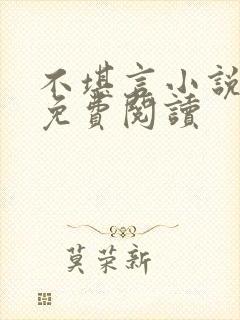 不堪言小説
免費閱讀
莫荣新